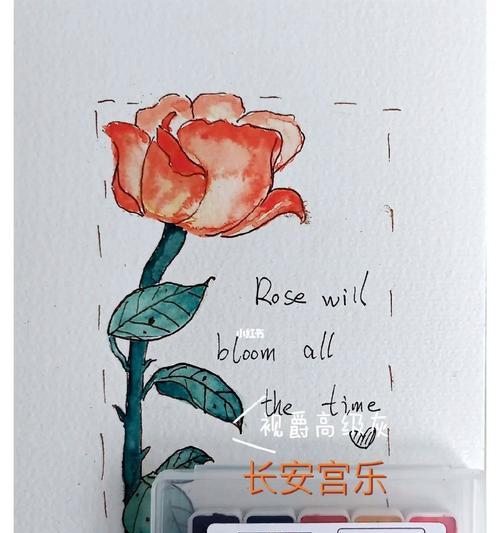 Rose will
小红书
bloom all
the time
视爵高级灰
长安宫乐